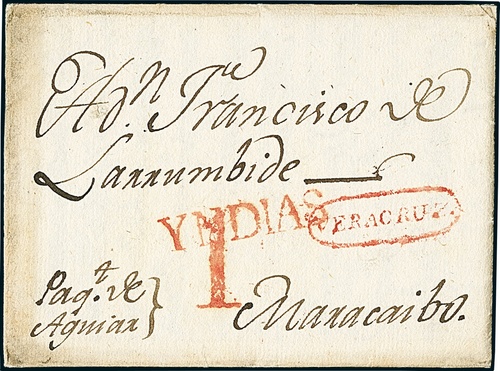 A Dn. Francisco de
Larrumbide
YNDIAS
VERACRUZ
1
Paqt. de
Aguiar
Maracaibo.